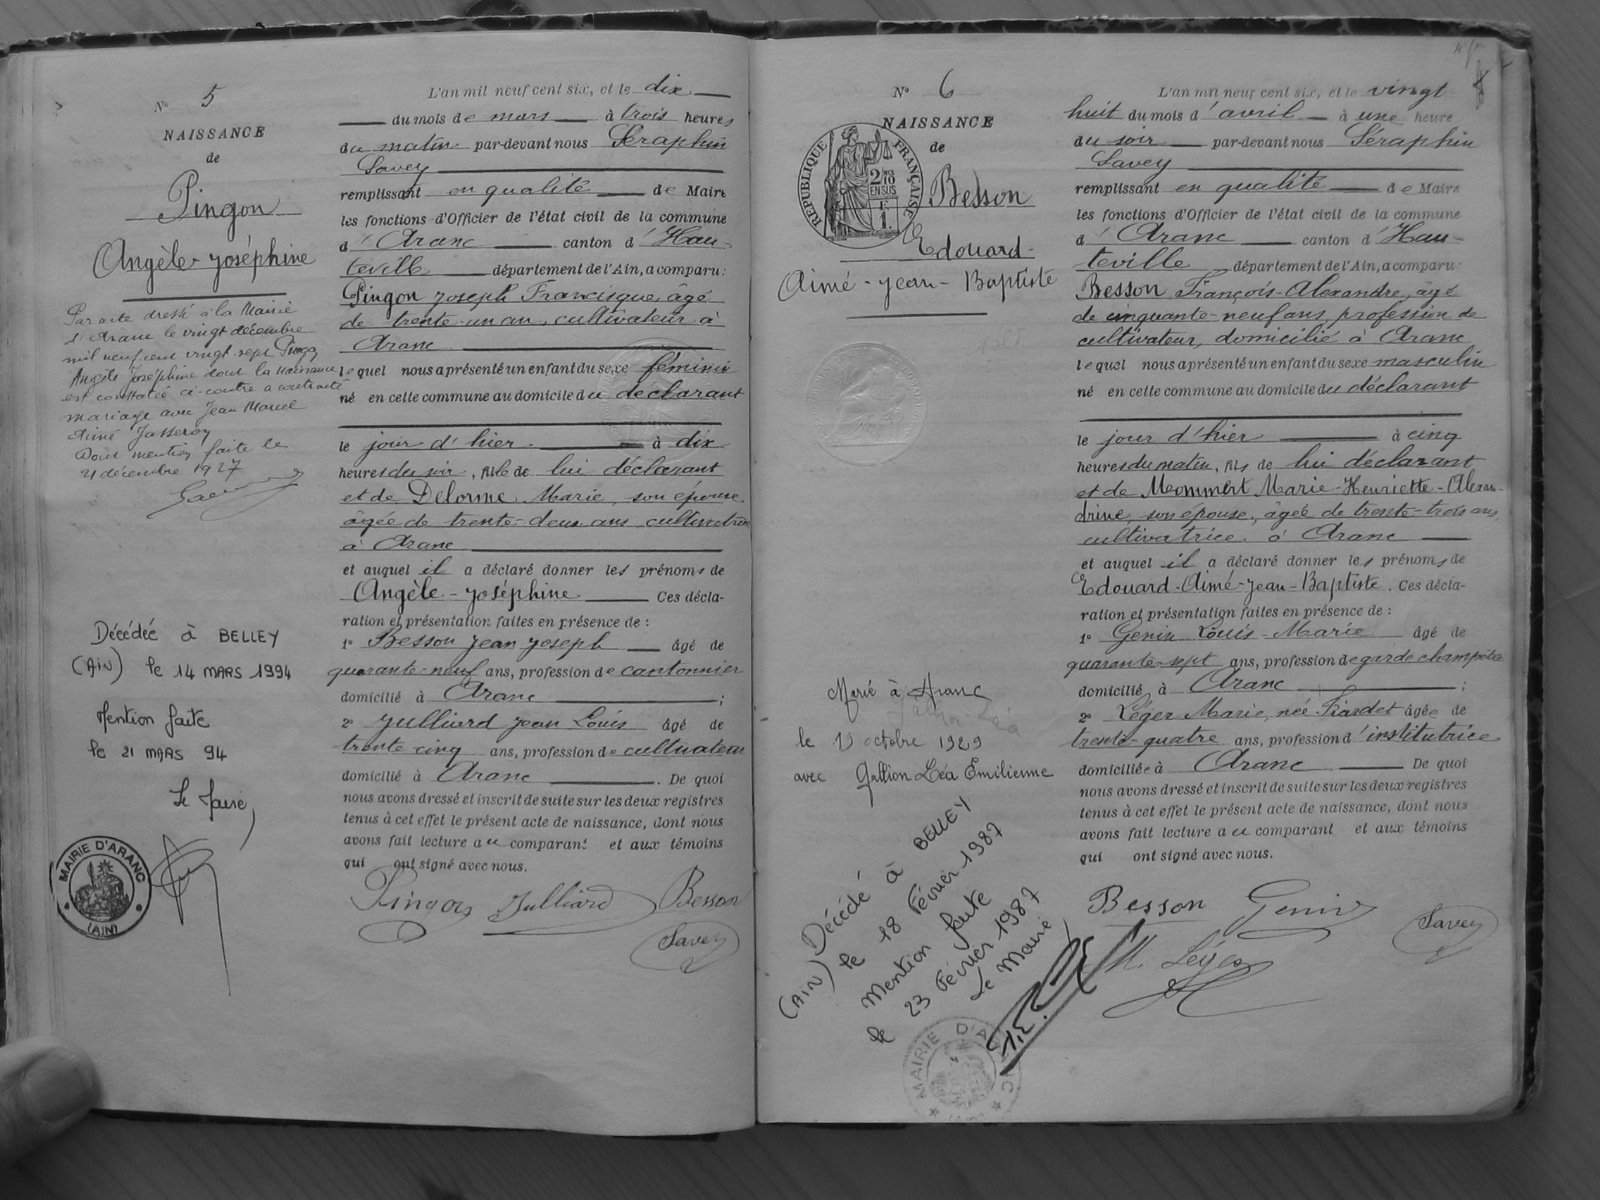 N° 5
NAISSANCE
de
Pingon
Angèle-Joséphine
Par acte dressé à la Mairie
d'Aranc le vingt décembre
mil neuf cent vingt-sept Pingon
Angèle Joséphine dont la naissance
est constatée ci-contre a contracté
mariage avec Jean Marcel
Aimé Jasseron
Dont mention faite le
21 décembre 1927
Décédée à BELLEY
(AIN) le 14 MARS 1994
Mention faite
le 21 MARS 94
Le Maire,
MAIRIE D'ARANC
(AIN)
L'an mil neuf cent six, et le dix
du mois de mars à trois heures
du matin par-devant nous Séraphin
Savey
remplissant en qualité de Maire
les fonctions d'Officier de l'état civil de la commune
d'Aranc canton d'Hau-
teville département de l'Ain, a comparu:
Pingon Joseph Francisque, âgé
de trente-un an, cultivateur à
Aranc
lequel nous a présenté un enfant du sexe féminin
né en cette commune au domicile du déclarant
le jour d'hier à dix
heures du soir, fille de lui déclarant
et de Delorme Marie, son épouse
âgée de trente-deux ans, cultivatrice
à Aranc
et auquel il a déclaré donner les prénoms de
Angèle-Joséphine Ces décla-
ration et présentation faites en présence de:
1° Besson Jean Joseph âgé de
quarante-neuf ans, profession de cantonnier
domicilié à Aranc ;
2° Julliard Jean Louis âgé de
trente cinq ans, profession de cultivateur
domicilié à Aranc. De quoi
nous avons dressé et inscrit de suite sur les deux registres
tenus à cet effet le présent acte de naissance, dont nous
avons fait lecture au comparant et aux témoins
qui ont signé avec nous.
Pingon Julliard Besson
Savey
N° 6
NAISSANCE
de
REPUBLIQUE FRANÇAISE
2/10 EN SUS
Besson
Edouard-
Aimé-Jean-Baptiste
Marié à Aranc
le 19 octobre 1929
avec Gallion Léa Emilienne
Décédé à BELLEY
(AIN) le 18 Février 1987
Mention faite
le 23 Février 1987
Le Maire,
MAIRIE D'ARANC
L'an mil neuf cent six, et le vingt
huit du mois d'avril à une heure
du soir par-devant nous Séraphin
Savey
remplissant en qualité de Maire
les fonctions d'Officier de l'état civil de la commune
d'Aranc canton d'Hau-
teville département de l'Ain, a comparu:
Besson François-Alexandre, âgé
de cinquante-neuf ans, profession de
cultivateur, domicilié à Aranc
lequel nous a présenté un enfant du sexe masculin
né en cette commune au domicile du déclarant
le jour d'hier à cinq
heures du matin, fils de lui déclarant
et de Mommert Marie-Henriette-Alexan-
drine, son épouse, âgée de trente-trois ans
cultivatrice à Aranc
et auquel il a déclaré donner les prénoms de
Edouard-Aimé-Jean-Baptiste. Ces décla-
ration et présentation faites en présence de:
1° Genin Louis-Marie âgé de
quarante-sept ans, profession de garde champêtre
domicilié à Aranc ;
2° Léger Marie, née Liardet âgée de
trente-quatre ans, profession d'institutrice
domiciliée à Aranc De quoi
nous avons dressé et inscrit de suite sur les deux registres
tenus à cet effet le présent acte de naissance, dont nous
avons fait lecture au comparant et aux témoins
qui ont signé avec nous.
Besson Genin
Savey
M. Léger